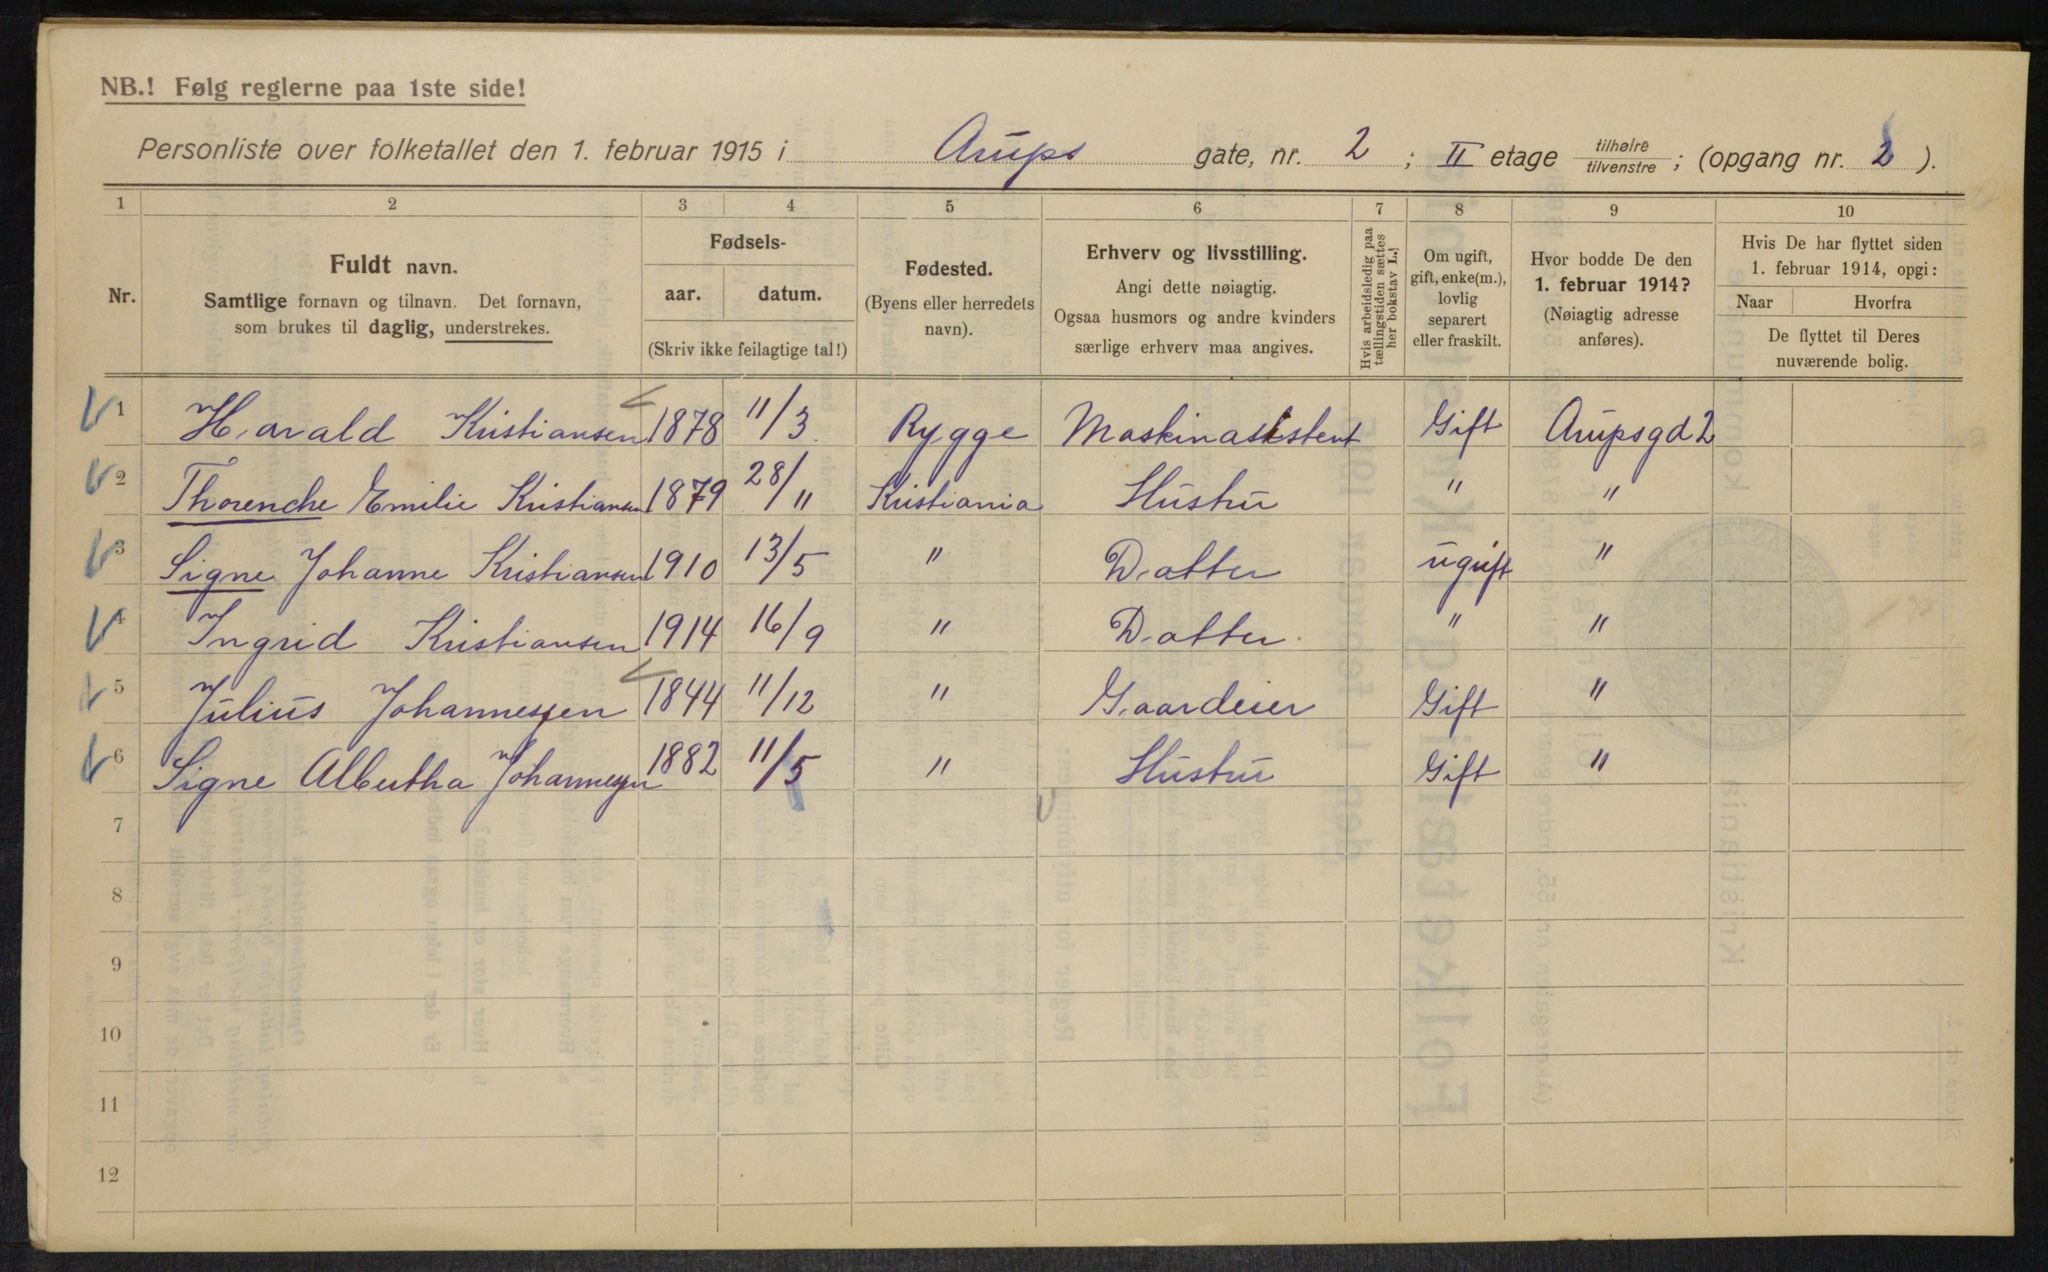 NB.! Følg reglerne paa 1ste side!
Personliste over folketallet den 1. februar 1915 i Arups gate, nr. 2 ; II etage tilhøire / tilvenstre ; (opgang nr. 2 ).
1 2 3 4 5 6 7 8 9 10
Nr.
Fuldt navn.
Samtlige fornavn og tilnavn. Det fornavn,
som brukes til daglig, understrekes.
Fødsels-
aar. datum.
(Skriv ikke feilagtige tal!)
Fødested.
(Byens eller herredets
navn).
Erhverv og livsstilling.
Angi dette nøiagtig.
Ogsaa husmors og andre kvinders
særlige erhverv maa angives.
Hvis arbeidsledig paa
tællingstiden sættes
her bokstav L.
Om ugift,
gift, enke(m.),
lovlig
separert
eller fraskilt.
Hvor bodde De den
1. februar 1914?
(Nøiagtig adresse
anføres).
Hvis De har flyttet siden
1. februar 1914, opgi:
Naar Hvorfra
De flyttet til Deres
nuværende bolig.
1 Harald Kristiansen 1878 11/3 Rygge Maskinasistent Gift Arupsgd 2
2 Thorenche Emilie Kristiansen 1879 28/11 Kristiania Hustru " "
3 Signe Johanne Kristiansen 1910 13/5 " Datter ugift "
4 Ingrid Kristiansen 1914 16/9 " Datter " "
5 Julius Johannessen 1844 11/12 " Gaardeier Gift "
6 Signe Albertha Johannessen 1882 11/5 " Hustru Gift "
7
8
9
10
11
12